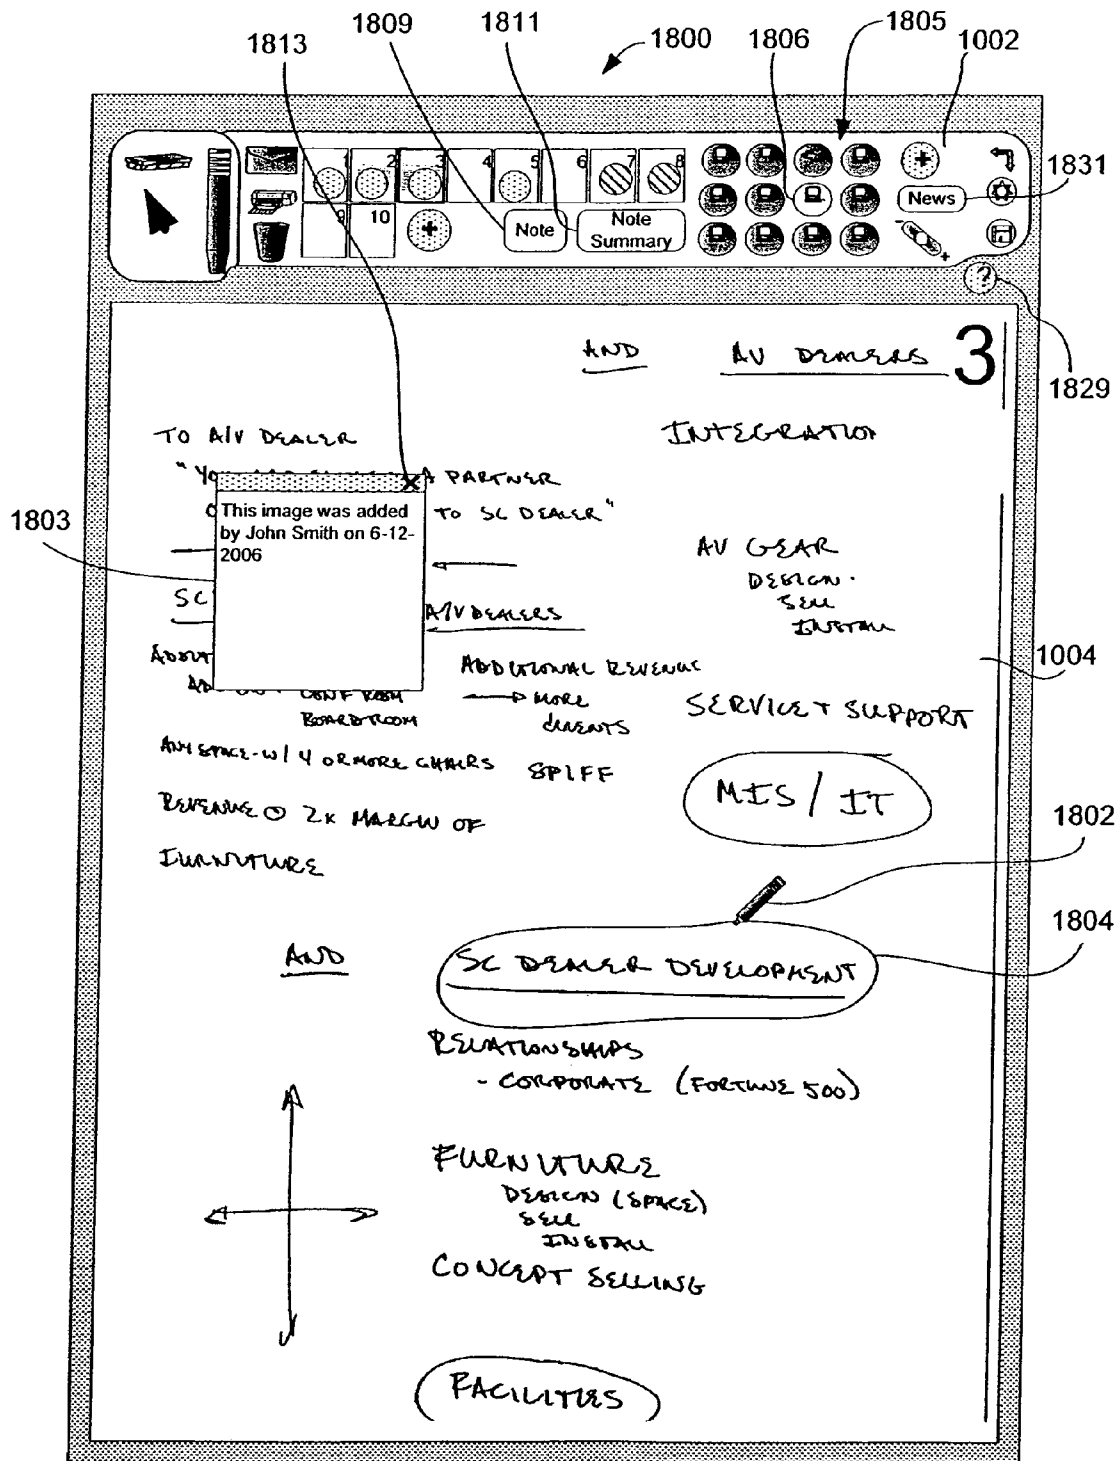 1813
1809
1811
1800
1806
1805
1002
1 2 3 4 5 6 7 8
9 10
+
Note
Note
Summary
+
News
- +
?
1831
1829
AND AV DEALERS 3
TO A/V DEALER
INTEGRATION
A PARTNER
TO SC DEALER"
X
This image was added
by John Smith on 6-12-
2006
1803
AV GEAR
DESIGN
SELL
INSTALL
SC
A/V DEALERS
1004
ADDITIONAL REVENUE
CONF ROOM
BOARDROOM
→ MORE
CLIENTS
SERVICE + SUPPORT
ANY SPACE - W/ 4 OR MORE CHAIRS
SPIFF
MIS / IT
REVENUE @ 2x MARGIN OF
FURNITURE
1802
1804
AND
SC DEALER DEVELOPMENT
RELATIONSHIPS
- CORPORATE (FORTUNE 500)
FURNITURE
DESIGN (SPACE)
SELL
INSTALL
CONCEPT SELLING
FACILITIES